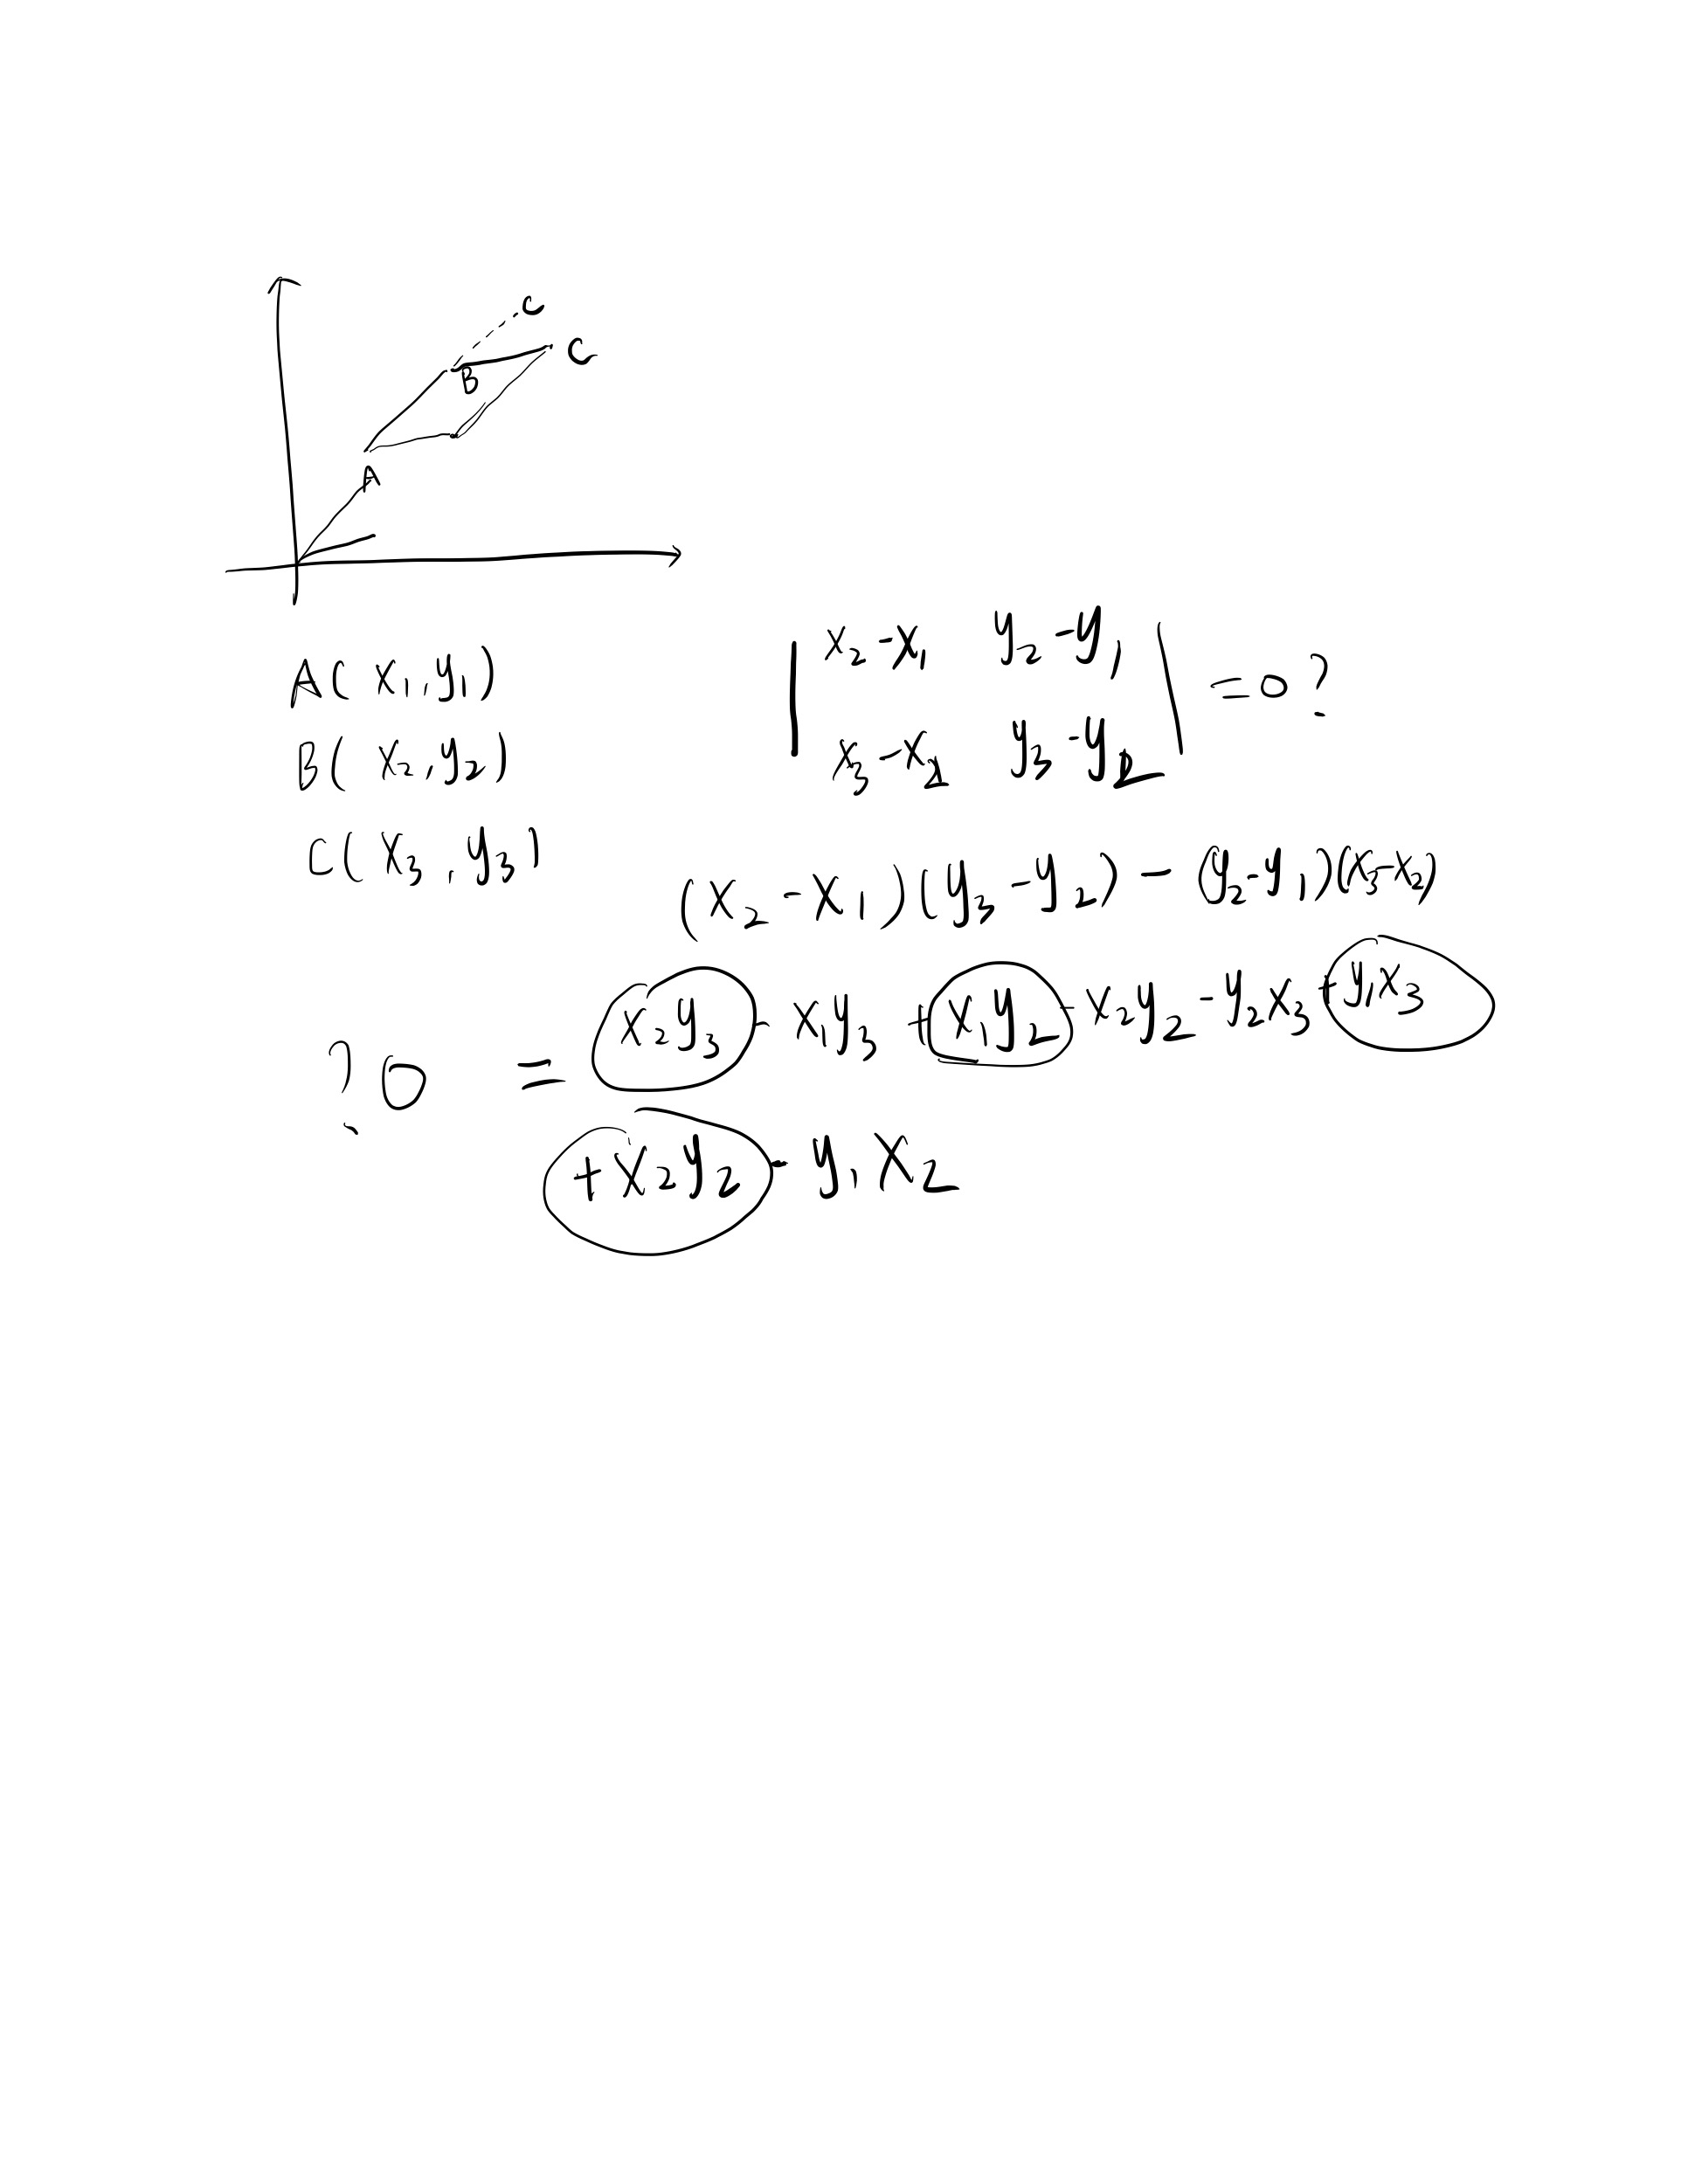 C
C
B
A
A(x₁,y₁)
B(x₂,y₂)
C(x₃,y₃)
| x₂-x₁ y₂-y₁ |
| x₃-x₂ y₃-y₂ | =0?
(x₂-x₁)(y₃-y₂)-(y₂-y₁)(x₃-x₂)
?0 = x₂y₃-x₁y₃+x₁y₂-x₂y₂-y₂x₃+y₁x₃
+x₂y₂-y₁x₂